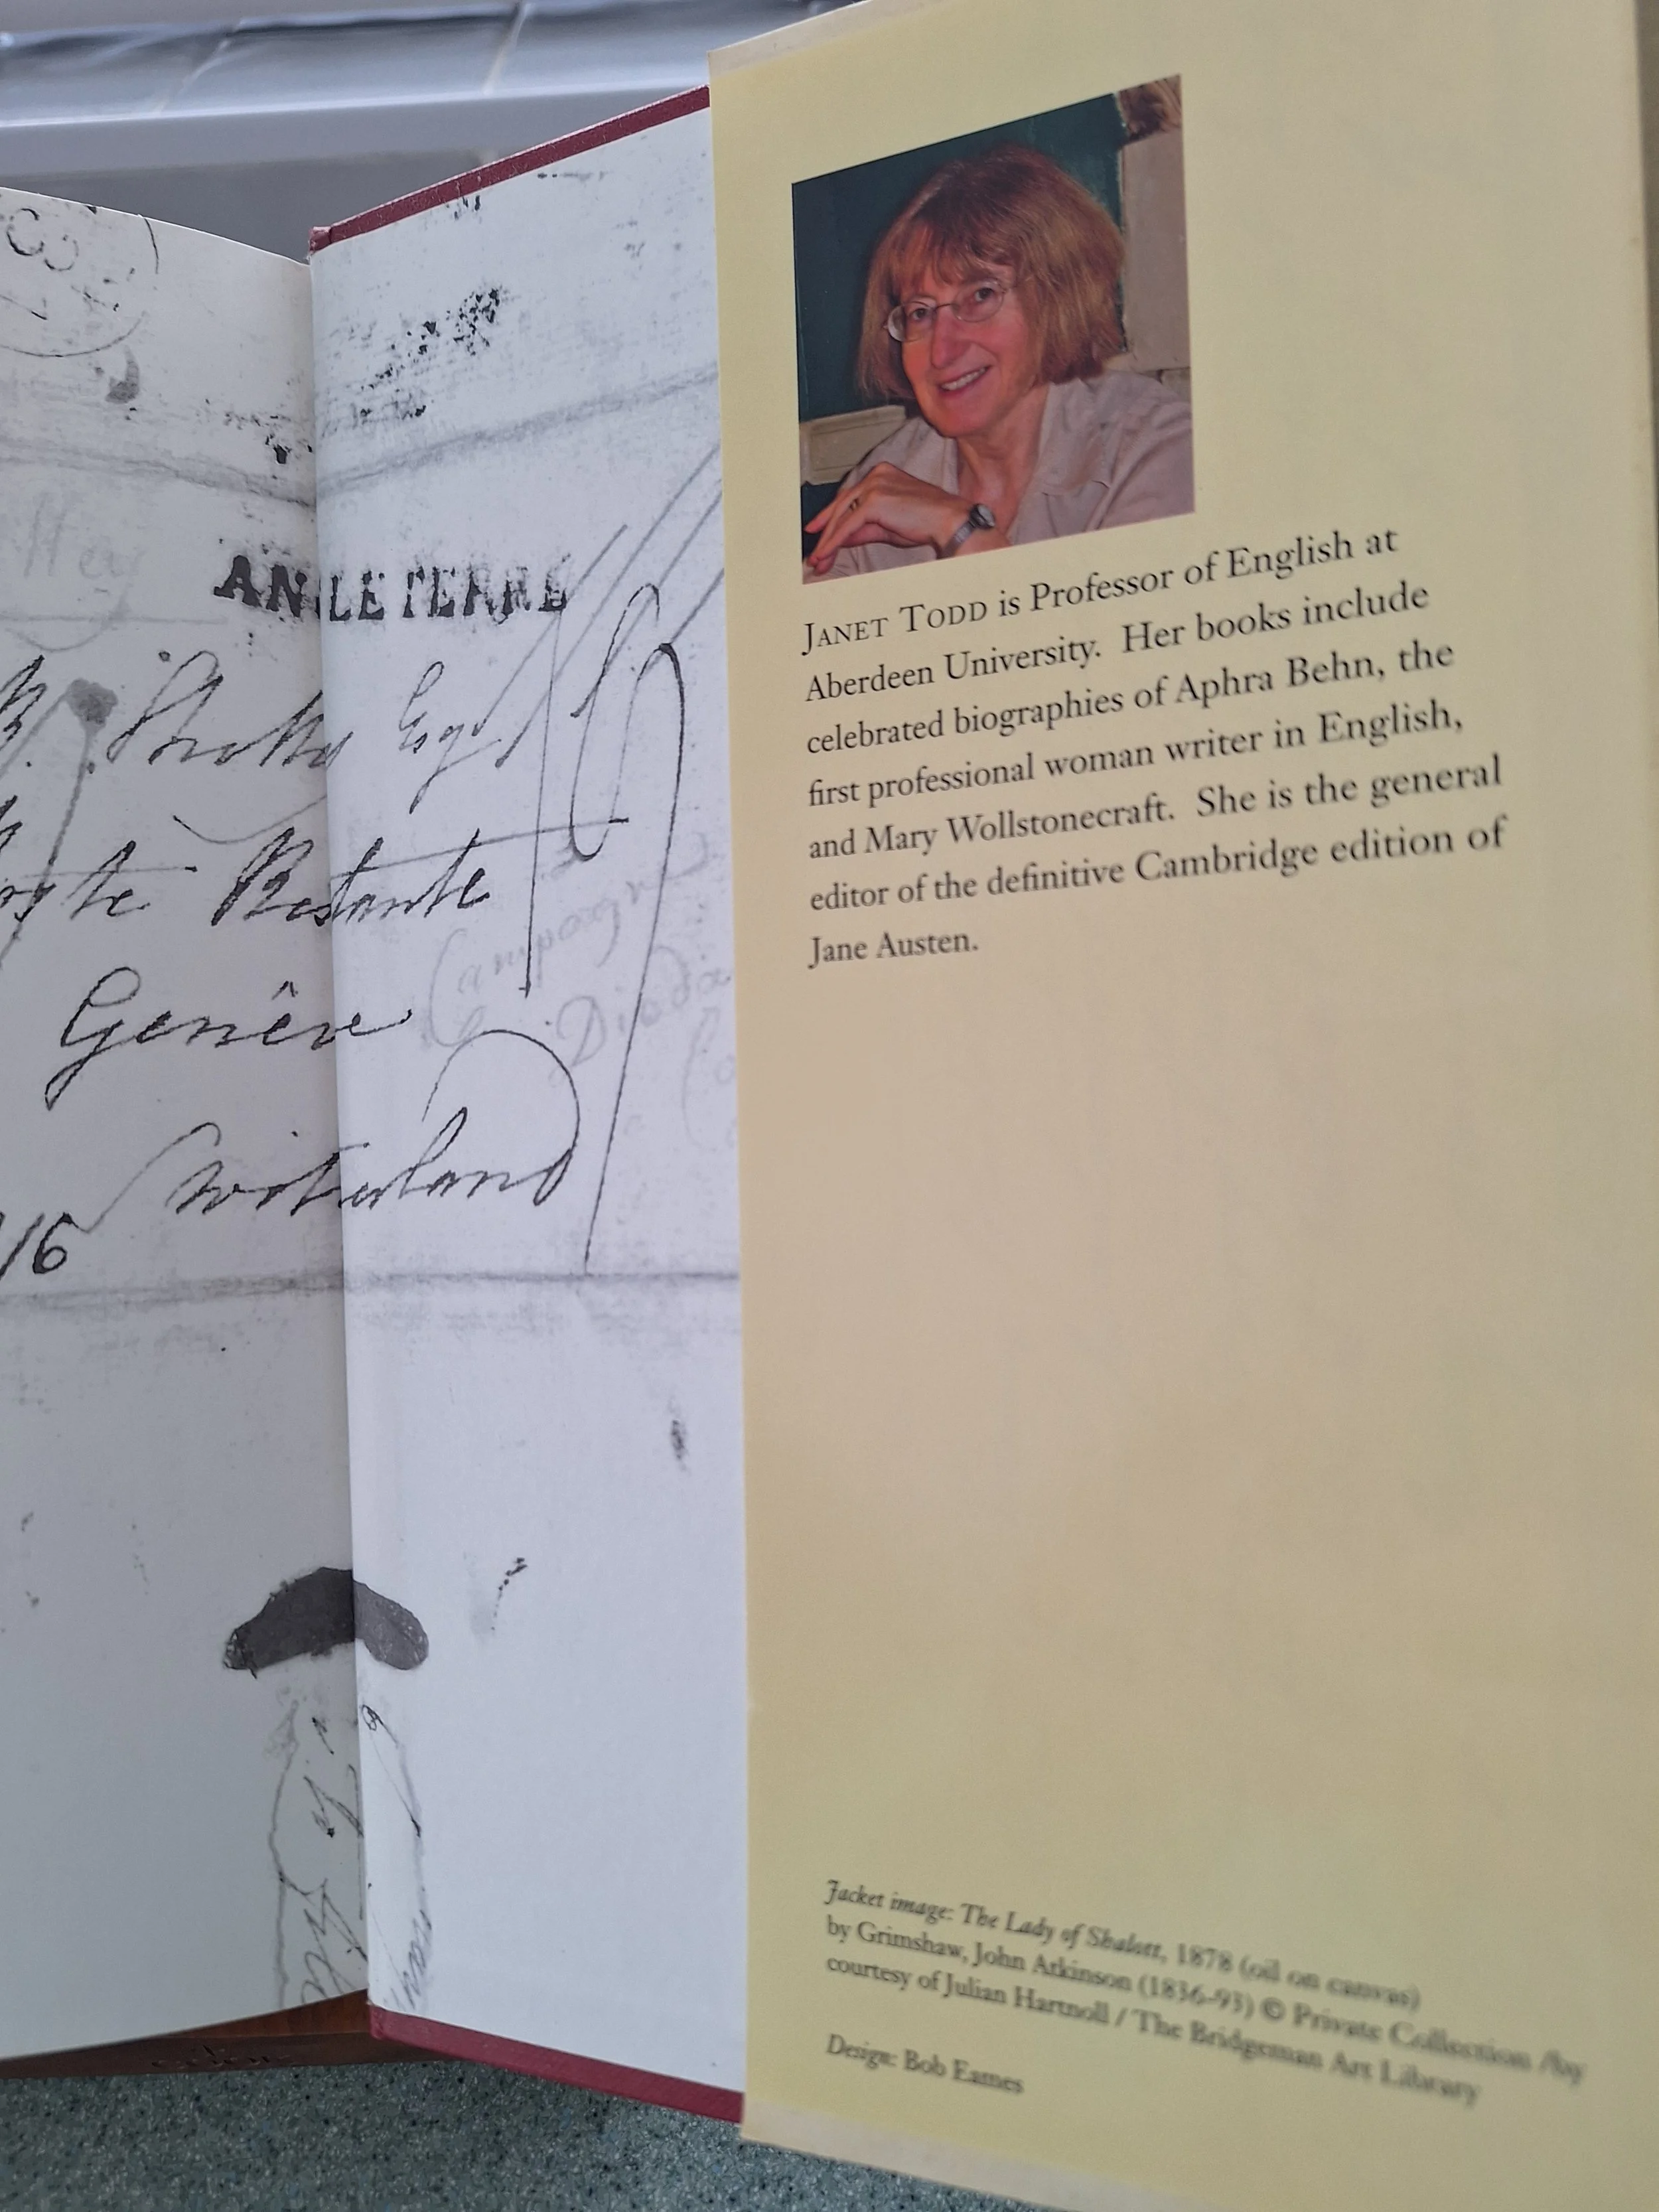 ANGLETERRE
Esqr
Poste Restante
Genêve
Switzerland
16
JANET TODD is Professor of English at
Aberdeen University. Her books include
celebrated biographies of Aphra Behn, the
first professional woman writer in English,
and Mary Wollstonecraft. She is the general
editor of the definitive Cambridge edition of
Jane Austen.
Jacket image: The Lady of Shalott, 1878 (oil on canvas)
by Grimshaw, John Atkinson (1836-93) © Private Collection /by
courtesy of Julian Hartnoll / The Bridgeman Art Library
Design: Bob Eames